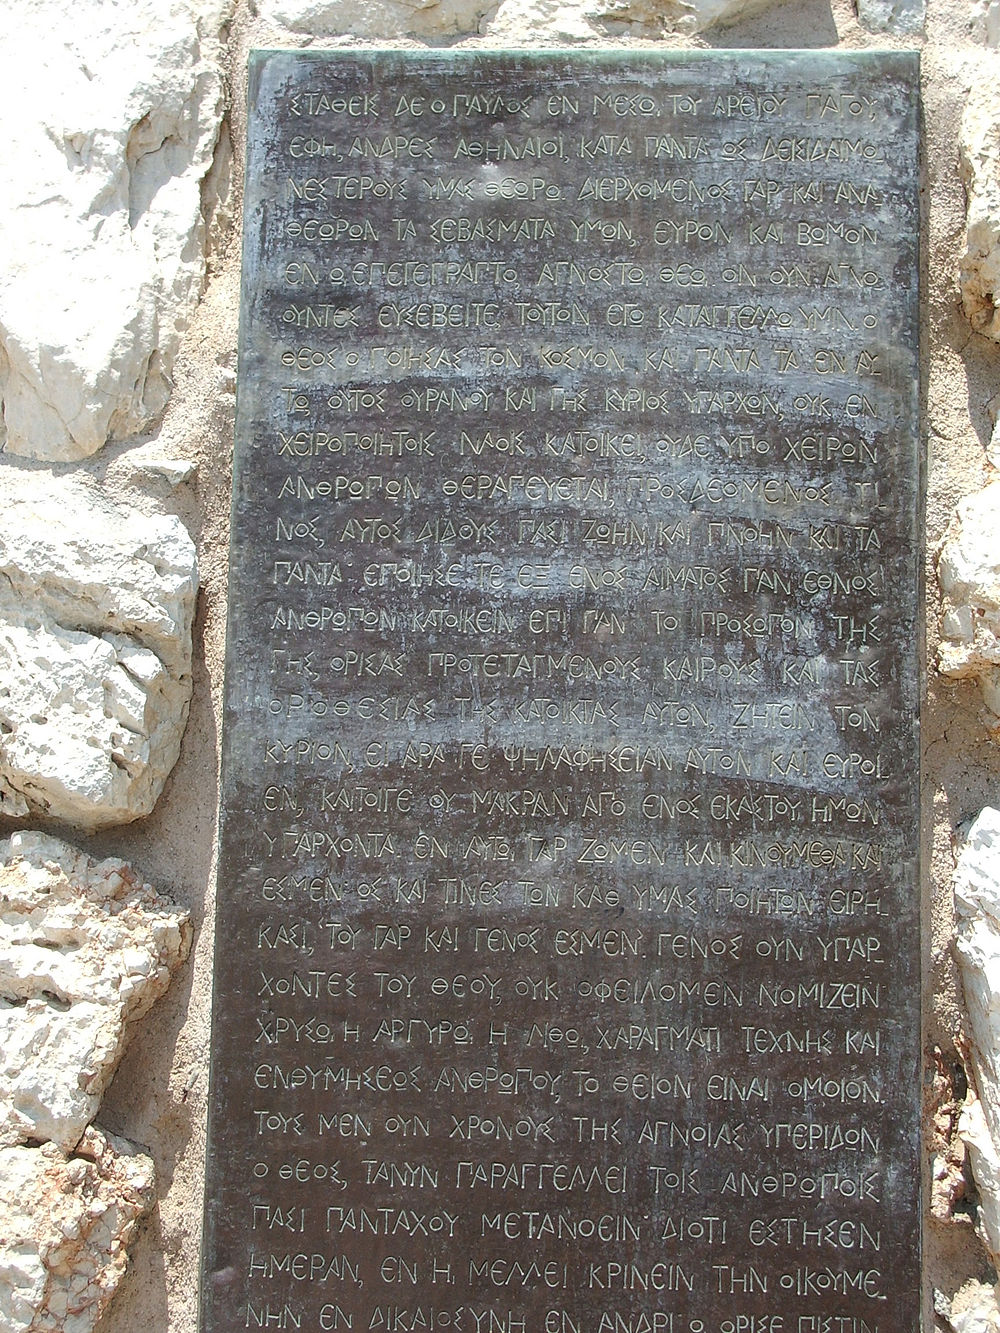 ΣΤΑΘΕΙΣ ΔΕ Ο ΠΑΥΛΟΣ ΕΝ ΜΕΣΩ, ΤΟΥ ΑΡΕΙΟΥ ΠΑΓΟΥ,
ΕΦΗ, ΑΝΔΡΕΣ ΑΘΗΝΑΙΟΙ, ΚΑΤΑ ΠΑΝΤΑ ΩΣ ΔΕΙΣΙΔΑΙΜΟ
ΝΕΣΤΕΡΟΥΣ ΥΜΑΣ ΘΕΩΡΩ. ΔΙΕΡΧΟΜΕΝΟΣ ΓΑΡ ΚΑΙ ΑΝΑ
ΘΕΩΡΩΝ ΤΑ ΣΕΒΑΣΜΑΤΑ ΥΜΩΝ, ΕΥΡΟΝ ΚΑΙ ΒΩΜΟΝ
ΕΝ Ω ΕΠΕΓΕΓΡΑΠΤΟ, ΑΓΝΩΣΤΩ ΘΕΩ. ΟΝ ΟΥΝ ΑΓΝΟ
ΟΥΝΤΕΣ ΕΥΣΕΒΕΙΤΕ, ΤΟΥΤΟΝ ΕΓΩ ΚΑΤΑΓΓΕΛΛΩ ΥΜΙΝ. Ο
ΘΕΟΣ Ο ΠΟΙΗΣΑΣ ΤΟΝ ΚΟΣΜΟΝ ΚΑΙ ΠΑΝΤΑ ΤΑ ΕΝ ΑΥ
ΤΩ ΟΥΤΟΣ ΟΥΡΑΝΟΥ ΚΑΙ ΓΗΣ ΚΥΡΙΟΣ ΥΠΑΡΧΩΝ, ΟΥΚ ΕΝ
ΧΕΙΡΟΠΟΙΗΤΟΙΣ ΝΑΟΙΣ ΚΑΤΟΙΚΕΙ, ΟΥΔΕ ΥΠΟ ΧΕΙΡΩΝ
ΑΝΘΡΩΠΩΝ ΘΕΡΑΠΕΥΕΤΑΙ, ΠΡΟΣΔΕΟΜΕΝΟΣ ΤΙ
ΝΟΣ, ΑΥΤΟΣ ΔΙΔΟΥΣ ΠΑΣΙ ΖΩΗΝ ΚΑΙ ΠΝΟΗΝ ΚΑΙ ΤΑ
ΠΑΝΤΑ ΕΠΟΙΗΣΕ ΤΕ ΕΞ ΕΝΟΣ ΑΙΜΑΤΟΣ ΠΑΝ ΕΘΝΟΣ
ΑΝΘΡΩΠΩΝ ΚΑΤΟΙΚΕΙΝ ΕΠΙ ΠΑΝ ΤΟ ΠΡΟΣΩΠΟΝ ΤΗΣ
ΓΗΣ, ΟΡΙΣΑΣ ΠΡΟΤΕΤΑΓΜΕΝΟΥΣ ΚΑΙΡΟΥΣ ΚΑΙ ΤΑΣ
ΟΡΟΘΕΣΙΑΣ ΤΗΣ ΚΑΤΟΙΚΙΑΣ ΑΥΤΩΝ, ΖΗΤΕΙΝ ΤΟΝ
ΚΥΡΙΟΝ, ΕΙ ΑΡΑ ΓΕ ΨΗΛΑΦΗΣΕΙΑΝ ΑΥΤΟΝ ΚΑΙ ΕΥΡΟΙ
ΕΝ, ΚΑΙΤΟΙΓΕ ΟΥ ΜΑΚΡΑΝ ΑΠΟ ΕΝΟΣ ΕΚΑΣΤΟΥ ΗΜΩΝ
ΥΠΑΡΧΟΝΤΑ ΕΝ ΑΥΤΩ ΓΑΡ ΖΩΜΕΝ ΚΑΙ ΚΙΝΟΥΜΕΘΑ ΚΑΙ
ΕΣΜΕΝ ΩΣ ΚΑΙ ΤΙΝΕΣ ΤΩΝ ΚΑΘ ΥΜΑΣ ΠΟΙΗΤΩΝ ΕΙΡΗ
ΚΑΣΙ, ΤΟΥ ΓΑΡ ΚΑΙ ΓΕΝΟΣ ΕΣΜΕΝ. ΓΕΝΟΣ ΟΥΝ ΥΠΑΡ
ΧΟΝΤΕΣ ΤΟΥ ΘΕΟΥ, ΟΥΚ ΟΦΕΙΛΟΜΕΝ ΝΟΜΙΖΕΙΝ
ΧΡΥΣΩ Η ΑΡΓΥΡΩ Η ΛΙΘΩ, ΧΑΡΑΓΜΑΤΙ ΤΕΧΝΗΣ ΚΑΙ
ΕΝΘΥΜΗΣΕΩΣ ΑΝΘΡΩΠΟΥ, ΤΟ ΘΕΙΟΝ ΕΙΝΑΙ ΟΜΟΙΟΝ.
ΤΟΥΣ ΜΕΝ ΟΥΝ ΧΡΟΝΟΥΣ ΤΗΣ ΑΓΝΟΙΑΣ ΥΠΕΡΙΔΩΝ
Ο ΘΕΟΣ, ΤΑΝΥΝ ΠΑΡΑΓΓΕΛΛΕΙ ΤΟΙΣ ΑΝΘΡΩΠΟΙΣ
ΠΑΣΙ ΠΑΝΤΑΧΟΥ ΜΕΤΑΝΟΕΙΝ ΔΙΟΤΙ ΕΣΤΗΣΕΝ
ΗΜΕΡΑΝ, ΕΝ Η ΜΕΛΛΕΙ ΚΡΙΝΕΙΝ ΤΗΝ ΟΙΚΟΥΜΕ
ΝΗΝ ΕΝ ΔΙΚΑΙΟΣΥΝΗ ΕΝ ΑΝΔΡΙ Ο ΩΡΙΣΕ ΠΙΣΤΙΝ